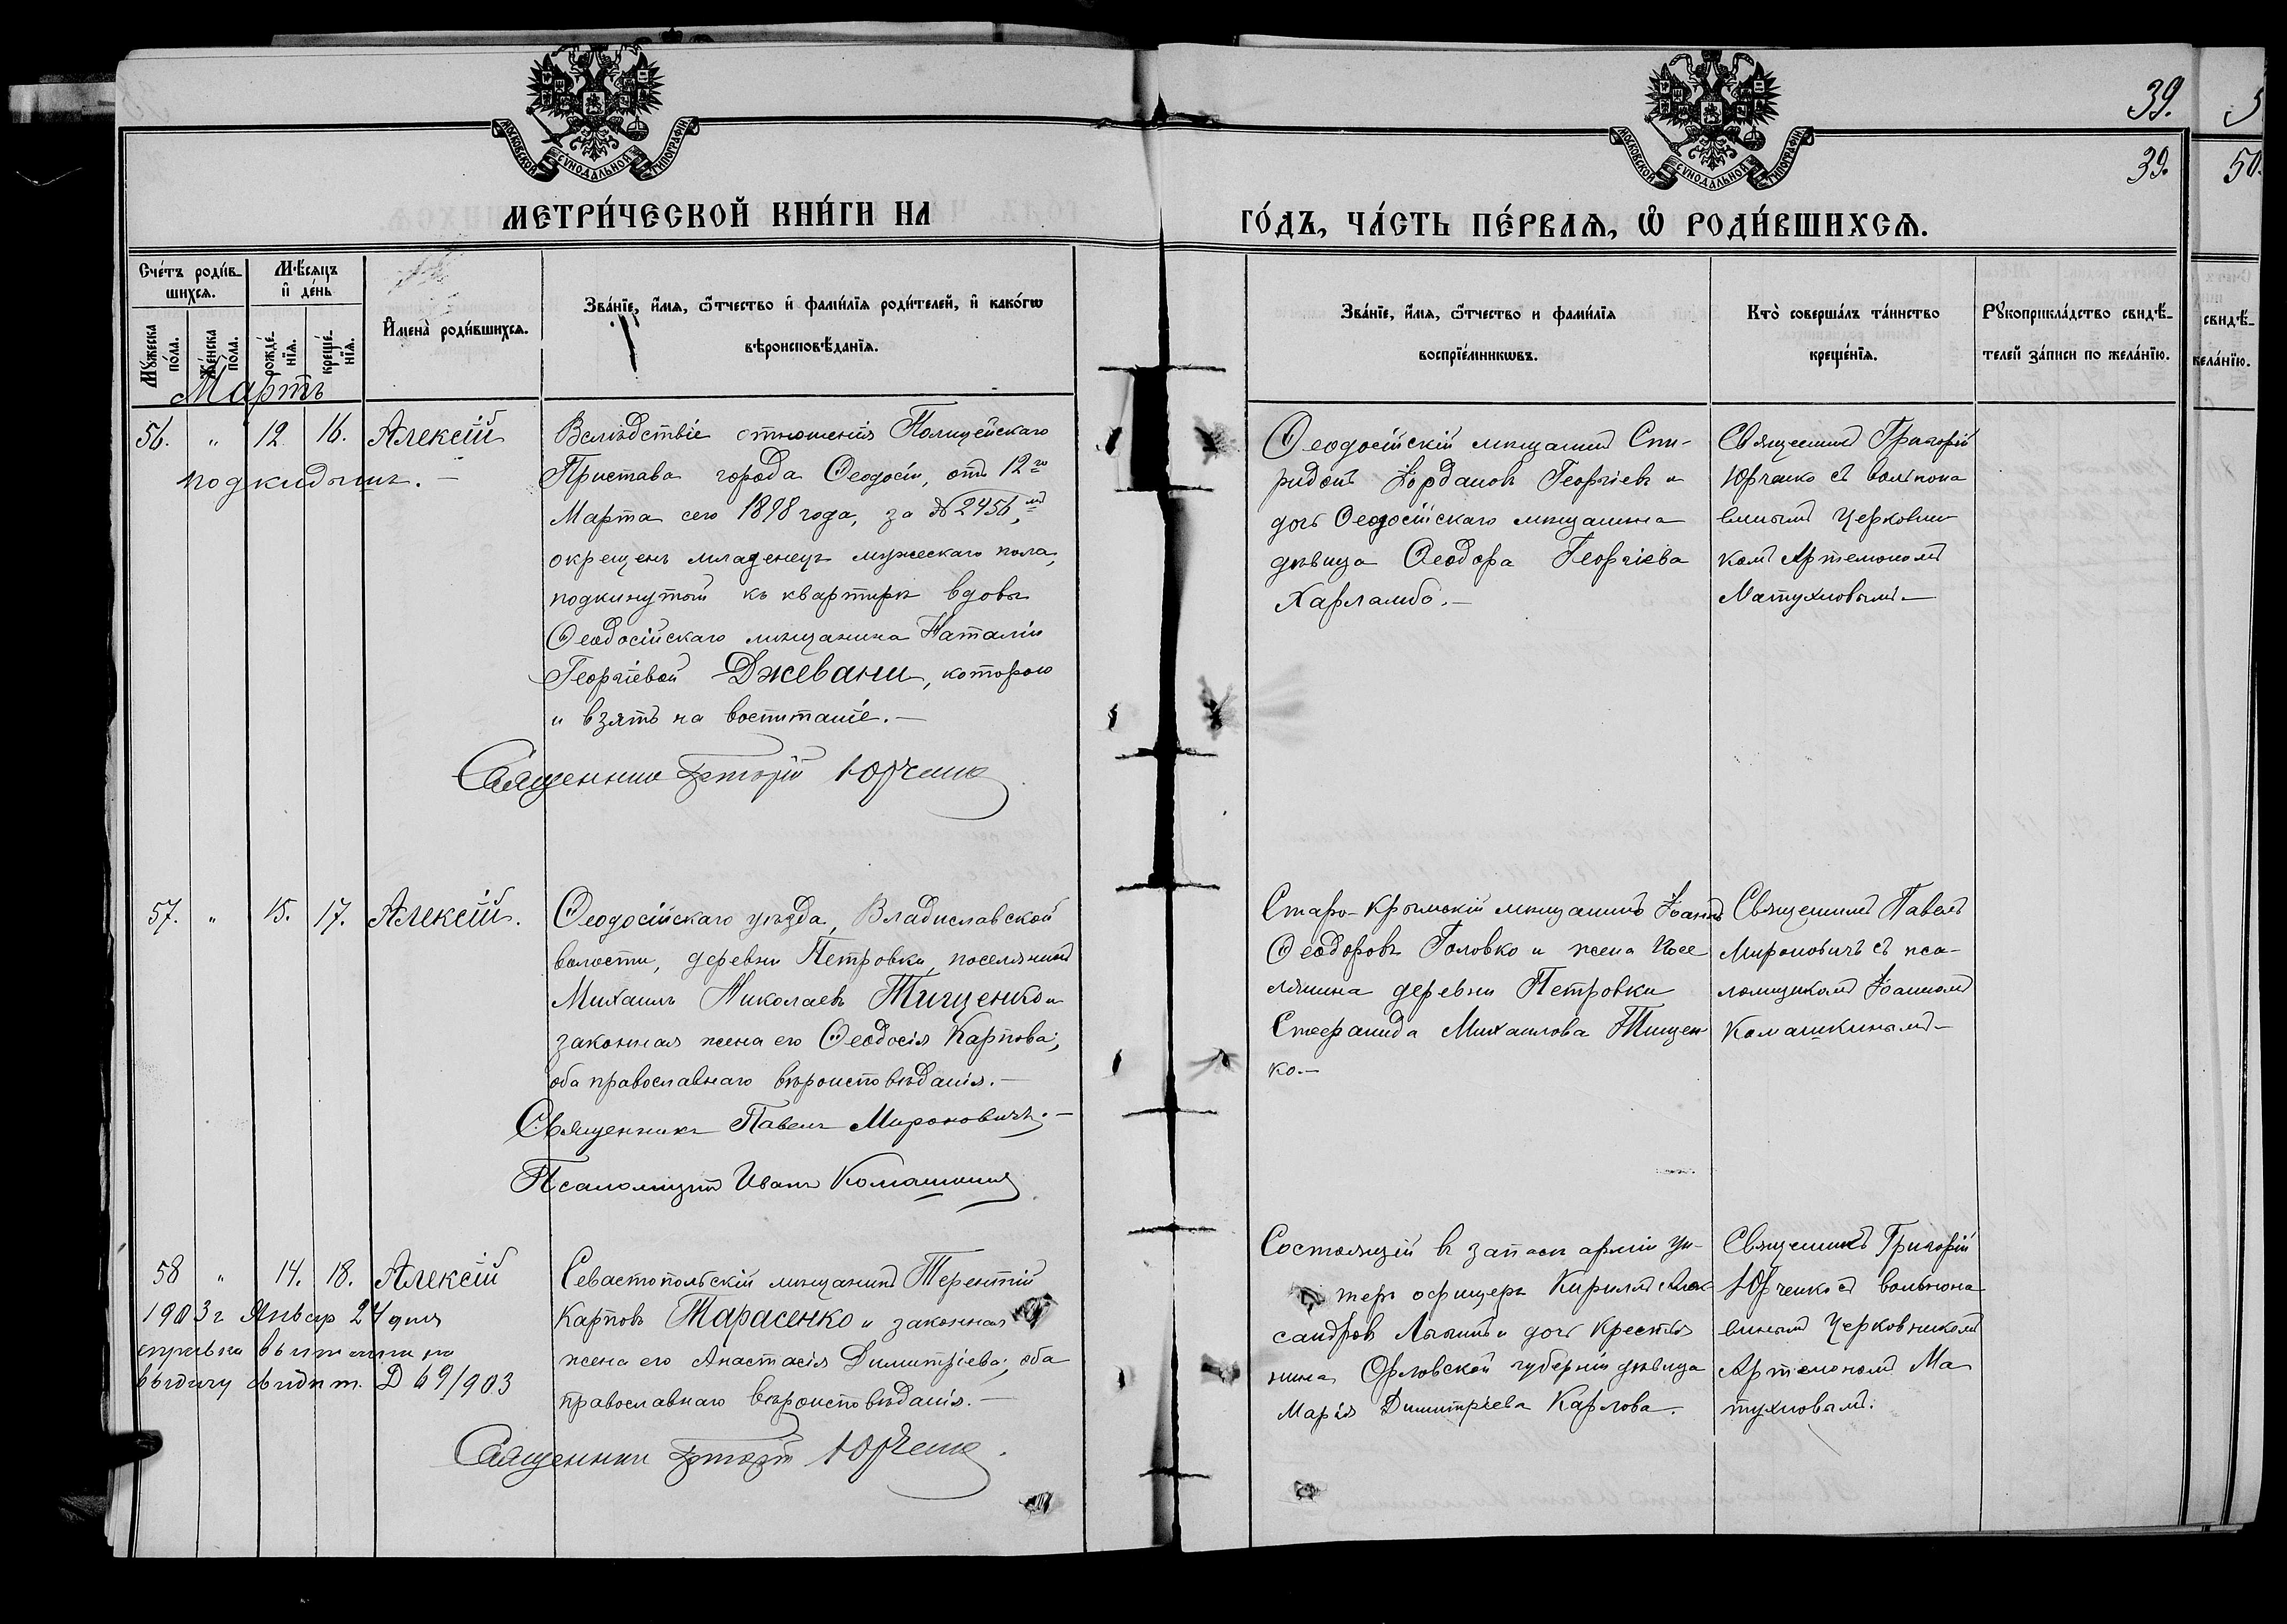 МОСКОВСКОЙ СѴНОДАЛЬНОЙ ТИПОГРАФІИ
МОСКОВСКОЙ СѴНОДАЛЬНОЙ ТИПОГРАФІИ
39.
39.
50.
МЕТРИ́ЧЕСКОЙ КНИ́ГИ НА
ГО́ДЪ, ЧА́СТЬ ПЕ́РВАѦ, Ѡ҆ РОДИ́ВШИХСѦ.
Сче́тъ роди́в-
шихсѧ.
Мѣ́сѧцъ
и҆ де́нь
Мꙋ́жеска
по́ла.
Же́нска
по́ла.
рожде́-
нїѧ.
креще́-
нїѧ.
И҆мена̀ роди́вшихсѧ.
Зва́нїе, и҆́мѧ, ѻ҆́тчество и҆ фами́лїѧ роди́телей, и҆ како́гѡ
вѣроисповѣ́данїѧ.
Зва́нїе, и҆́мѧ, ѻ҆́тчество и фами́лїѧ
воспрїе́мникѡвъ.
Кто̀ соверша́лъ та́инство
креще́нїѧ.
Рꙋкоприкла́дство свидѣ́-
телей за́писи по жела́нїю.
Мартъ
56. " 12 16. Алексій
подкидышъ.-
Вслѣдствіе отношенія Полицейскаго
Пристава города Ѳеодосіи, отъ 12го
Марта сего 1898 года, за № 2456,мъ
окрещенъ младенецъ мужескаго пола,
подкинутый къ квартирѣ вдовы
Ѳеодосійскаго мѣщанина Наталіи
Георгіевой Джевани, которою
и взятъ на воспитаніе.-
Священникъ Григорій Юрченко
Ѳеодосійскій мѣщанинъ Спи-
ридонъ Іордановъ Георгіевъ и
дочь Ѳеодосійскаго мѣщанина
дѣвица Ѳеодора Георгіева
Харламбо.-
Священникъ Григорій
Юрченко съ вольнона
емнымъ Церковни
комъ Артемономъ
Матухновымъ-
57. " 15. 17. Алексій.
Ѳеодосійскаго уѣзда, Владиславской
волости, деревни Петровки, поселянинъ
Михаилъ Николаевъ Тищенко и
законная жена его Ѳеодосія Карпова;
оба православнаго вѣроисповѣданія.-
Священникъ Павелъ Мироновичъ.-
Псаломщикъ Иванъ Комашкинъ
Старо-Крымскій мѣщанинъ Іоаннъ
Ѳеодоровъ Головко и жена посе
лянина деревни Петровки
Стефанида Михаилова Тищен-
ко.-
Священникъ Павелъ
Мироновичъ съ пса-
ломщикомъ Іоанномъ
Комашкинымъ-
58 " 14. 18. Алексій
1903 г Январ 24 дня
выдачу свидѣт. 69/903
Севастопольскій мѣщанинъ Терентій
Карповъ Тарасенко и законная
жена его Анастасія Димитріева; оба
православнаго вѣроисповѣданія.-
Священникъ Григорій Юрченко.
Состоящій въ запасѣ арміи ун-
теръ офицеръ Кириллъ Алек-
сандровъ и дочь крестья
нина Орловской губерніи дѣвица
Марія Димитріева Карлова.
Священникъ Григорій
Юрченко съ вольнона
емнымъ Церковникомъ
Артемономъ Ма
тухновымъ.